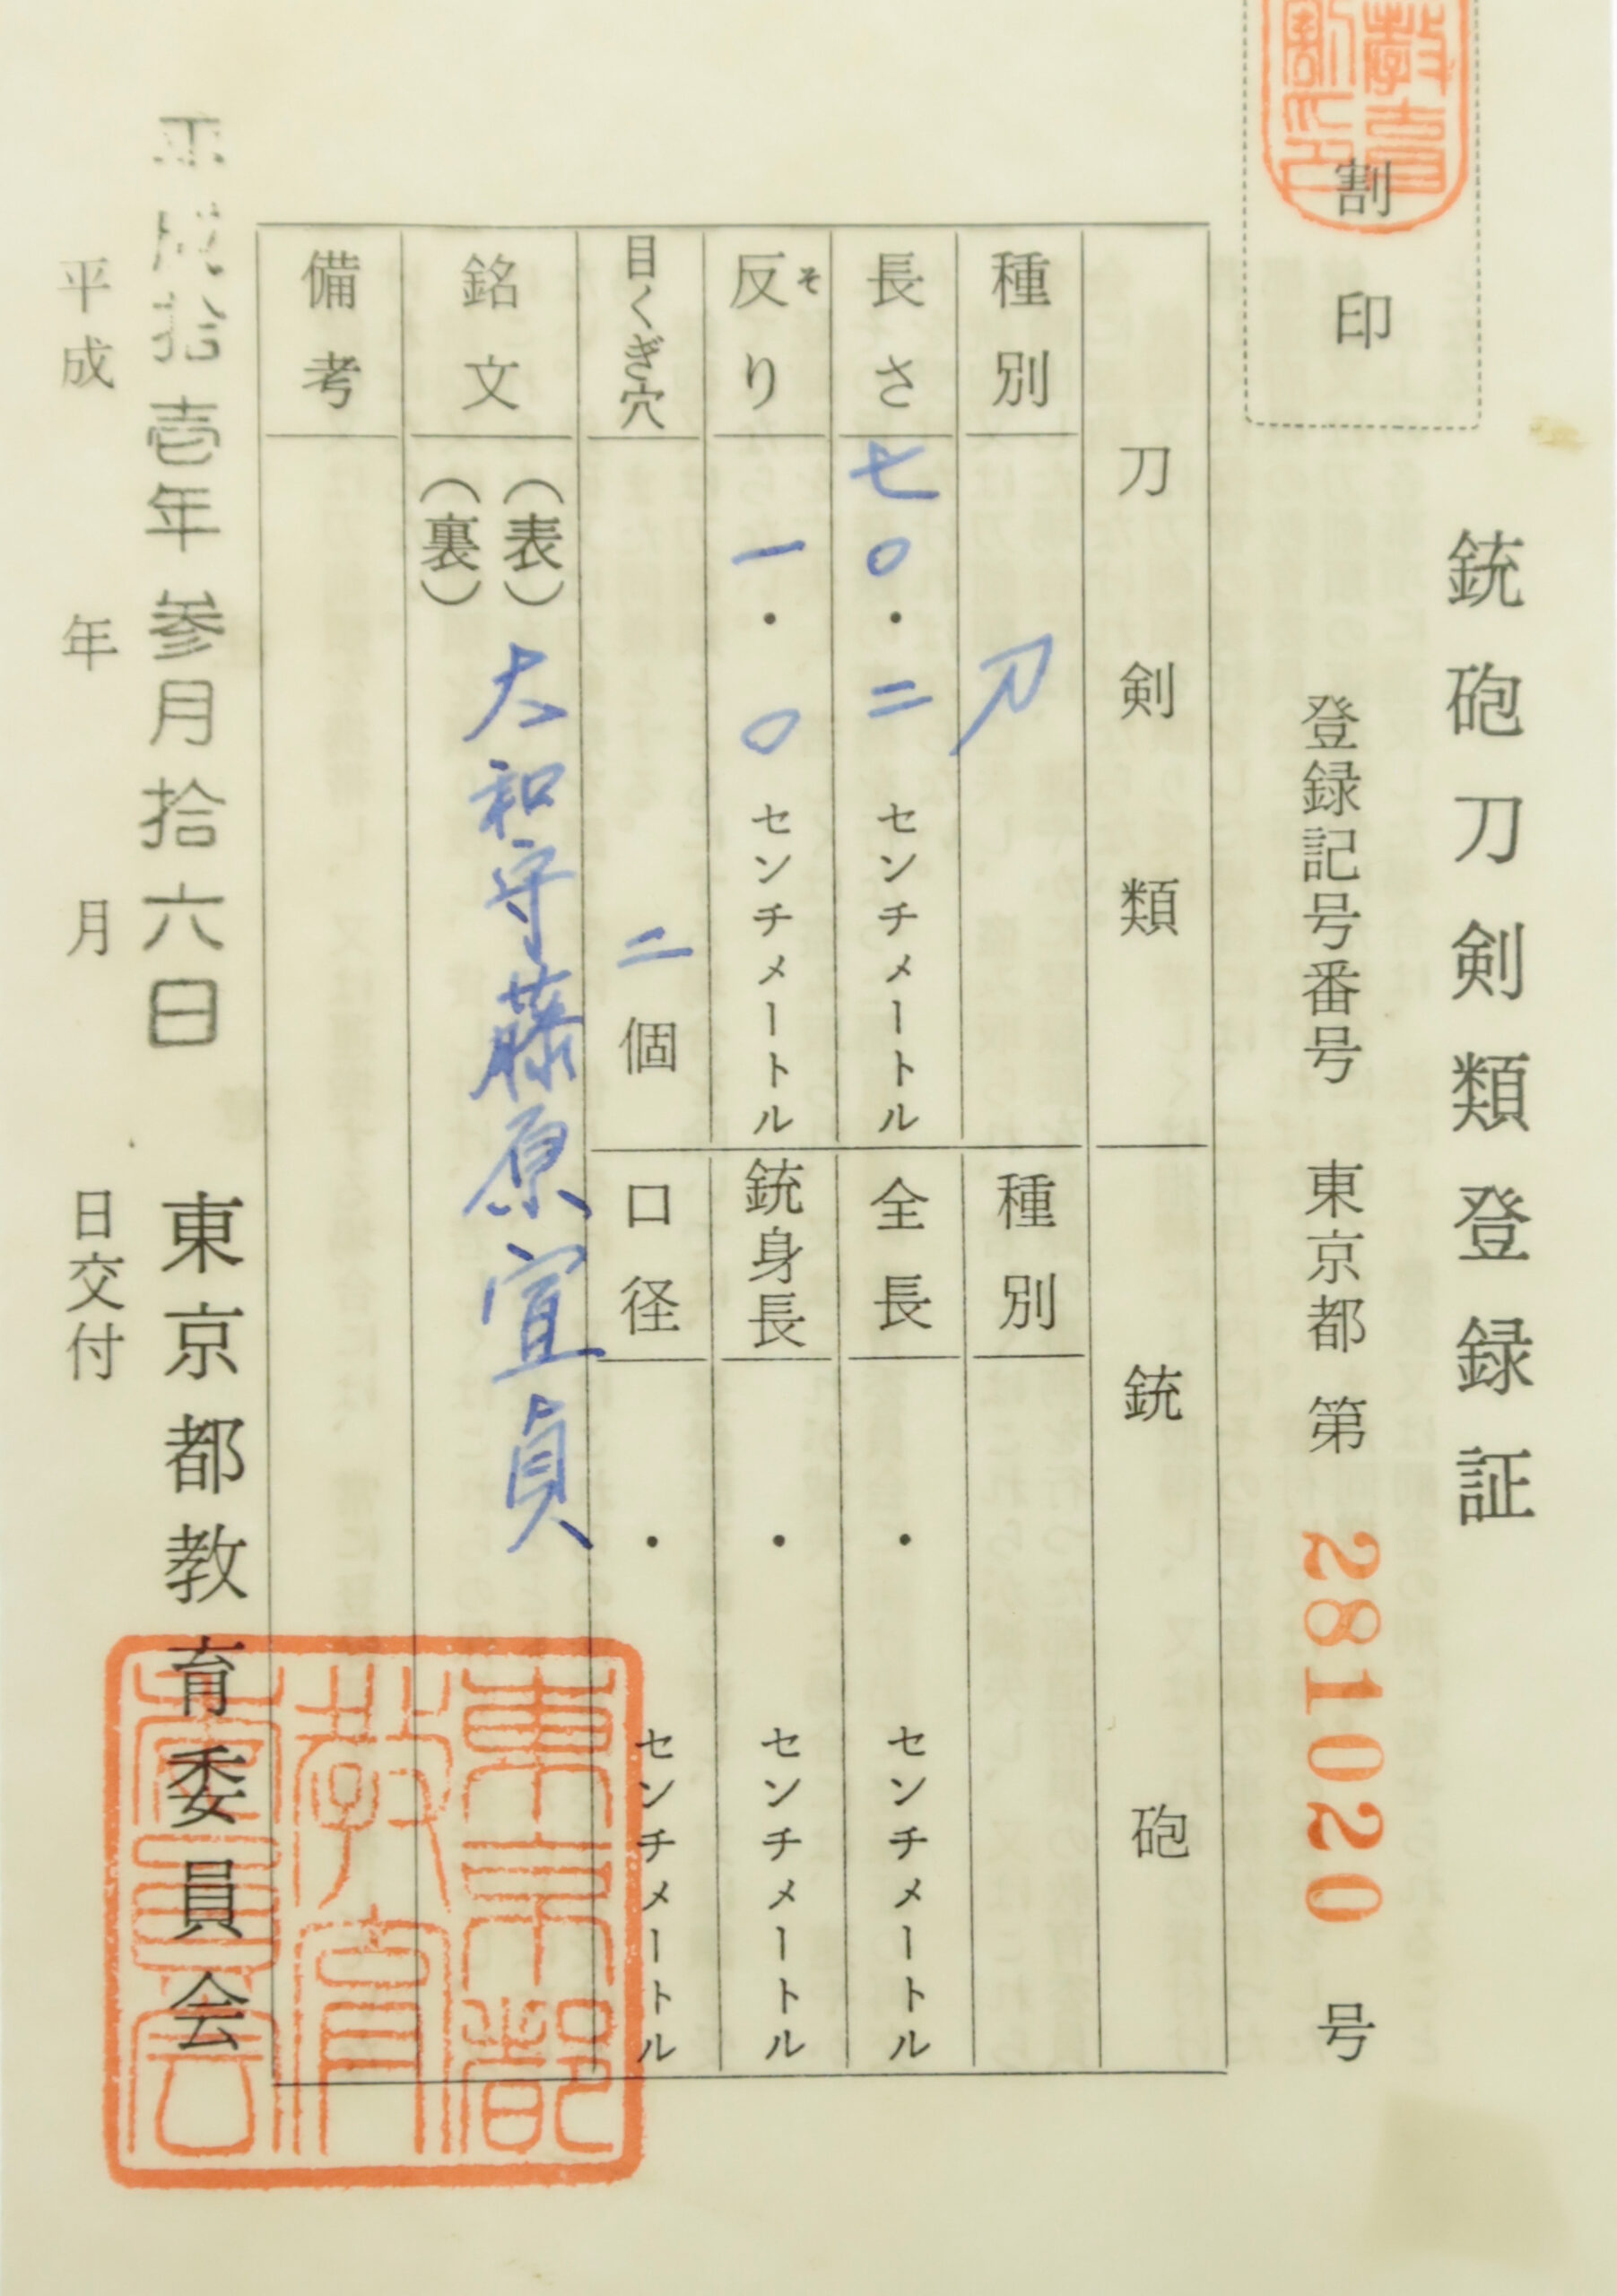 割印
銃砲刀剣類登録証
登録記号番号 東京都 第 281020 号
刀剣類
種別 刀
長さ 七〇・二 センチメートル
反り そ 一・〇 センチメートル
目くぎ穴 二個
銃砲
種別
全長 ・ センチメートル
銃身長 ・ センチメートル
口径 ・ センチメートル
銘文 (表) 大和守藤原宣貞
(裏)
備考
平成拾壱年参月拾六日
東京都教育委員会
平成 年 月 日交付
東京都教育委員会